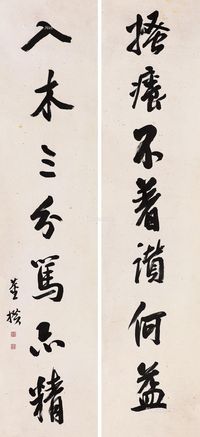 搔癢不着讚何益
入木三分罵亦精